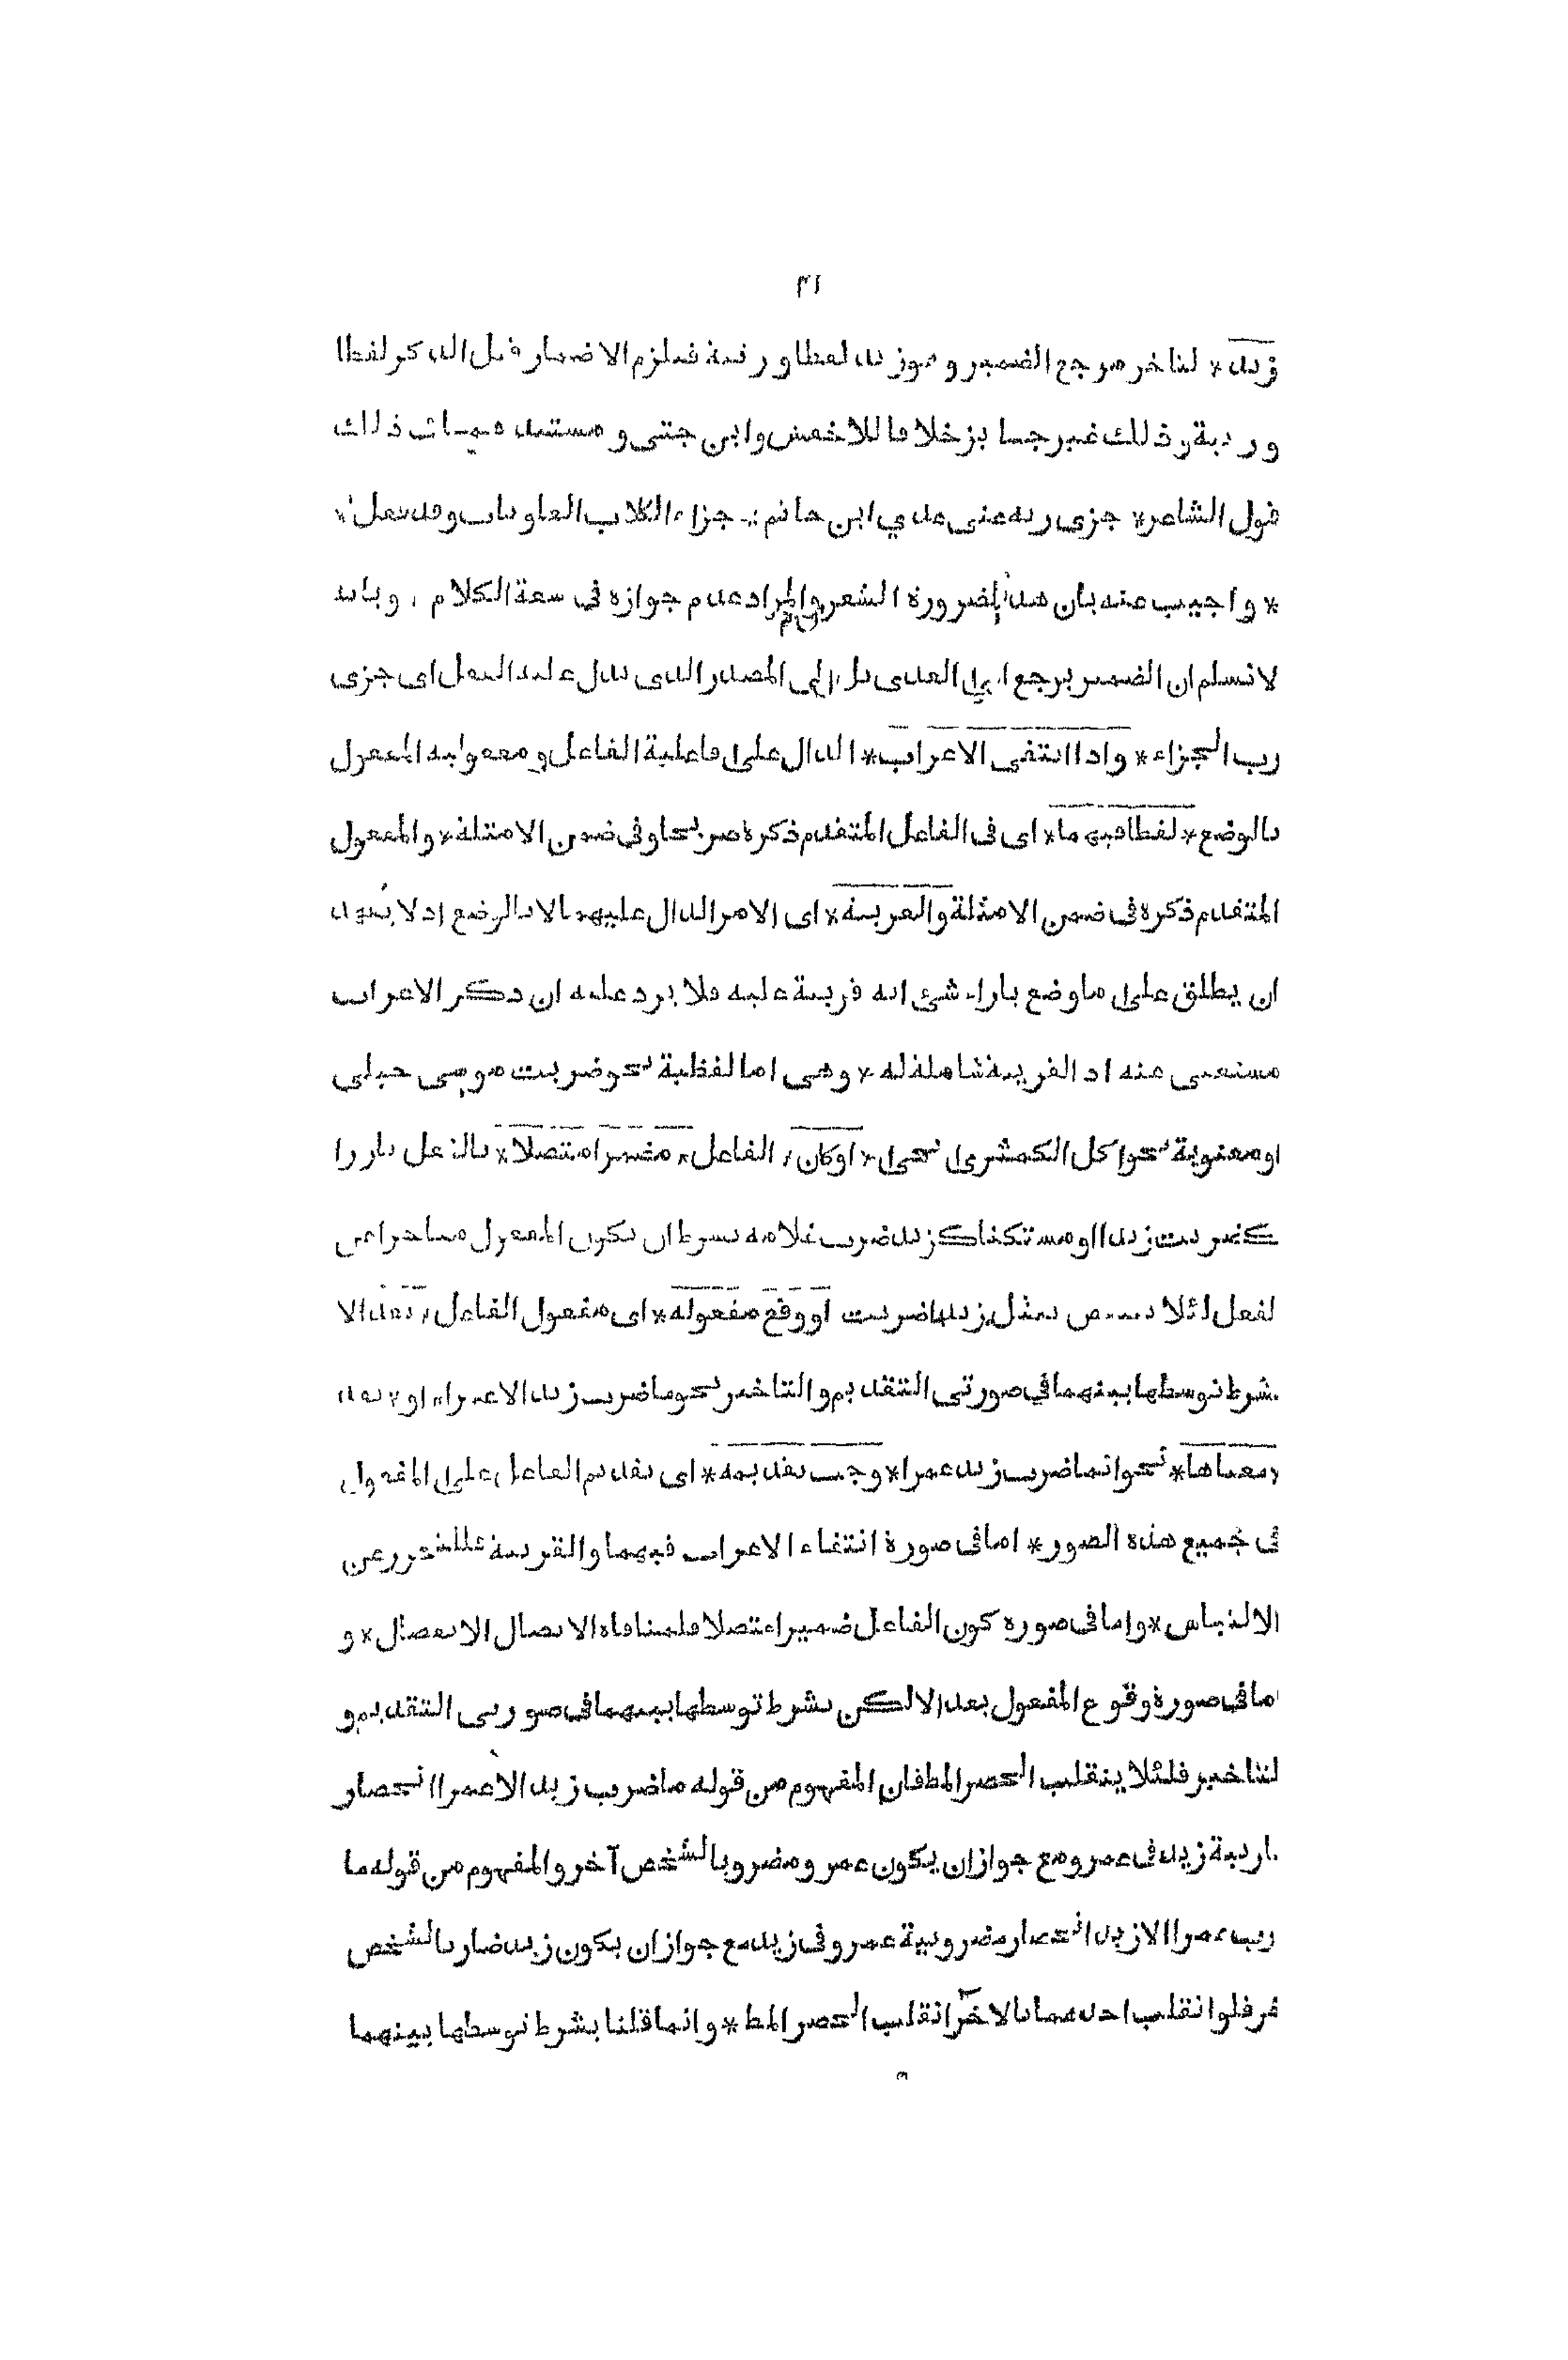 ٣١
زيد * لتاخر مرجع الضمير و هو زيد لفظا و رتبة فيلزم الاضمار قبل الذكر لفظا
و رتبة وذلك غير جايز خلافا للاخفش وابن جنى و مستند هما فى ذلك
قول الشاعر * جزى ربه عنى عدي ابن حاتم * جزاء الكلاب العاويات وقد فعل *
* واجيب عنه بان هذا لضرورة الشعر والمراد عدم جوازه فى سعة الكلام ، وبانه
لا نسلم ان الضمير يرجع الى العدى بل الى المصدر الذى يدل عليه الفعل اى جزى
رب الجزاء * واذا انتفى الاعراب * الدال على فاعلية الفاعل و مفعولية المفعول
بالوضع * لفظا فيهما * اى فى الفاعل المتقدم ذكره صريحا وفى ضمن الامثلة * والمفعول
المتقدم ذكره فى ضمن الامثلة والقرينة * اى الامر الدال عليهما لا بالوضع اذ لا يعهد
ان يطلق على ما وضع بازاء شئ انه قرينة عليه فلا يرد عليه ان ذكر الاعراب
مستغنى عنه اذ القرينة شاملة له * وهى اما لفظية نحو ضربت موسى حبلى
او معنوية نحو اكل الكمثرى يحيى * اوكان * الفاعل * مضمرا متصلا * بالفعل بارزا
كضربت زيدا او مستكنا كزيد ضرب غلامه بشرط ان يكون المفعول متاخرا عن
لفعل لئلا ينتقض بمثل زيدا ضربت او وقع مفعوله * اى مفعول الفاعل * بعد الا
بشرط توسطها بينهما في صورتى التقديم و التاخير نحو ما ضرب زيد الا عمرا * او * بعد
معناها * نحو انما ضرب زيد عمرا * وجب تقديمه * اى تقديم الفاعل على المفعول
فى جميع هذه الصور * اما فى صورة انتفاء الاعراب فيهما والقرينة فللتحرز عن
الالتباس * واما فى صورة كون الفاعل ضميرا متصلا فلمنافاة الاتصال الانفصال * و
اما فى صورة وقوع المفعول بعد الا لكن بشرط توسطها بينهما فى صورتى التقديم و
لتاخير فلئلا ينقلب الحصر المط فان المفهوم من قوله ما ضرب زيد الا عمرا انحصار
ضاربية زيد فى عمرو مع جواز ان يكون عمر و مضروبا لشخص آخر والمفهوم من قوله ما
ضرب عمرا الا زيد انحصار مضروبية عمرو فى زيد مع جواز ان يكون زيد ضاربا لشخص
آخر فلو انقلب احدهما بالاخر انقلب الحصر المط * وانما قلنا بشرط توسطها بينهما